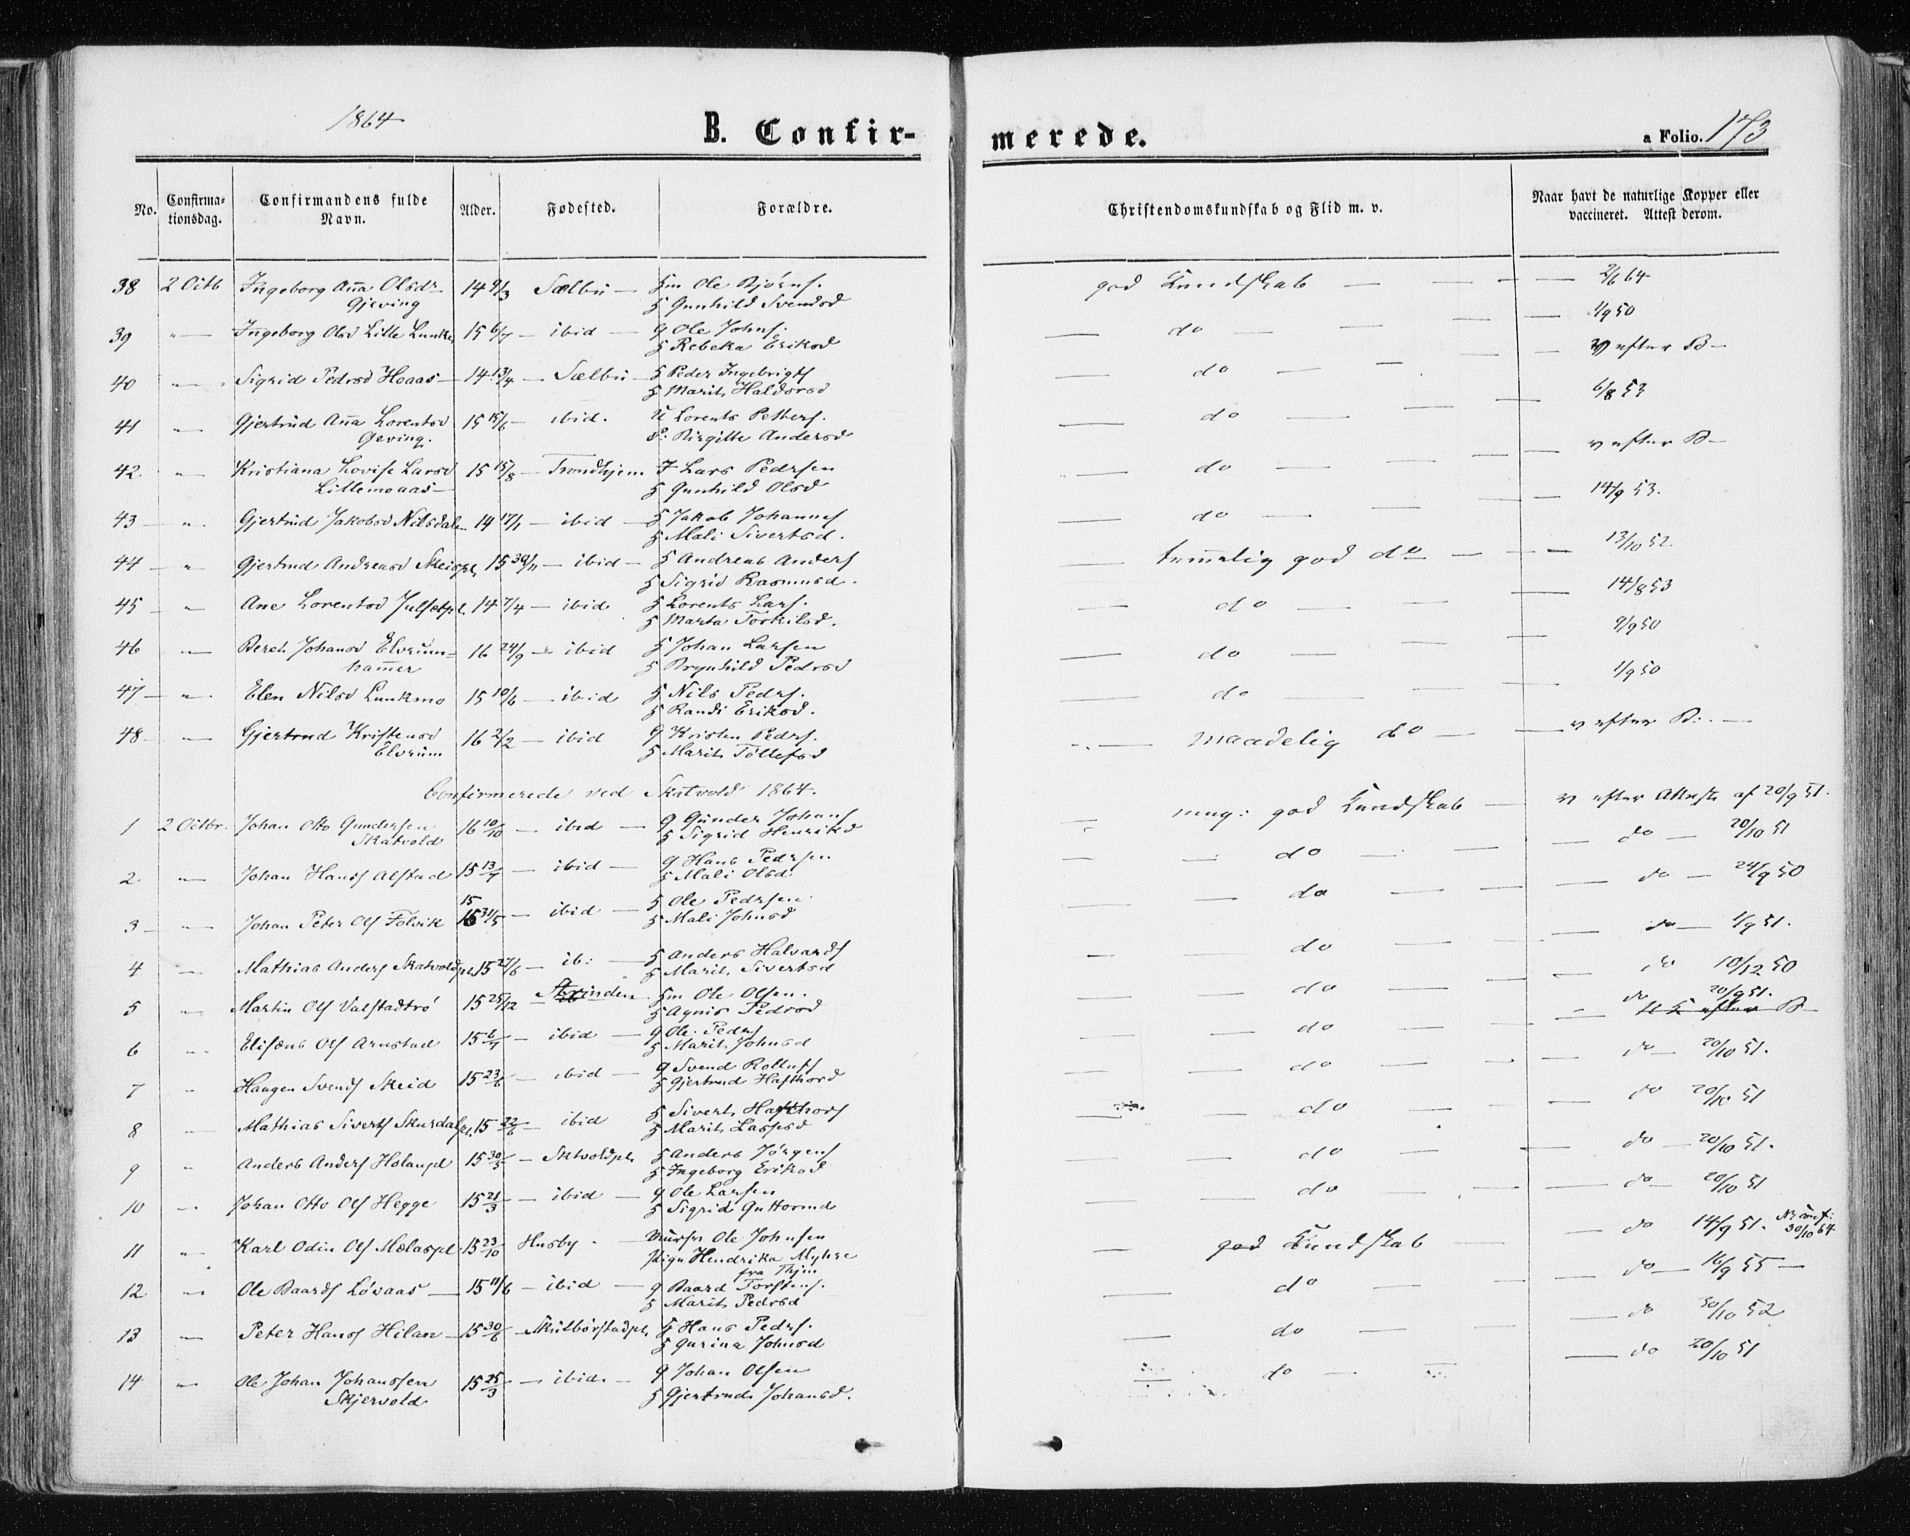 1864
B. Confir-
merede.
a Folio. 173
No.
Confirma-
tionsdag.
Confirmandens fulde
Navn.
Alder.
Fødested.
Forældre.
Christendomskundskab og Flid m. v.
Naar havt de naturlige Kopper eller
vaccineret. Attest derom.
38 2 Octb Ingeborg Ana Olsdr 14 9/3 Sælbu — Ole Bjørns. god Kundskab — 2/6 64
Gjeving Gunhild Svendsd
39 " Ingeborg Olsd Lille Lunke 15 6/7 — ibid — G Ole Johns. — do — 1/9 50
Rebeka Eriksd
40 " Sigrid Pedrsd Hoaas — 14 13/4 — Sælbu Peder Ingebrigts — do — v efter B —
Marit Haldorsd
41 " Gjertrud Ana Lorentsd 15 15/6 — ibid. U Lorents Petters. — do — 6/8 53
Geving. P. Birgitte Andersd
42 " Kristiana Lovise Larsd 15 15/8 — Trondhjem Lars Pedersen — do — v efter B —
Littemoaas — Gunhild Olsd
43 — " Gjertrud Jakobsd Nilsdal 14 17/1 — ibid — Jakob Johannes — do — 14/9 53.
Mali Sivertsd.
44 — " Gjertrud Andreasd Skeispl. 15 30/11 — ibid — Andreas Anders — temelig god do — 13/10 52
Sigrid Rasmusd.
45 " Ane Lorentsd Julsetpl. 14 7/4 — ibid Lorents Lars. — do — 14/8 53
Marta Torkilsd.
46 " Beret Johansd Elvrum- 16 24/9 — ibid Johan Larsen — do — 9/9 50
hamer Brynhild Pedrsd
47 — " Elen Nilsd Lunkmo 15 10/6 — ibid Nils Pedrs. — do — 1/9 50
Randi Eriksd.
48 — " Gjertrud Kristensd 16 2/2 — ibid G Kristen Pedrs. — maadelig do — v efter B. —
Elvrum Marit Tollefsd
Confirmerede ved Skatvold 1864.
1 2 Octbr. Johan Otto Gundersen 16 10/10 — ibid — G Gunder Johans meg: god Kundskab — v efter Atteste af 20/9 51.
Skatvold Sigrid Henriksd
2 " Johan Hans Alstad 15 13/7 — ibid — G Hans Pedersen — do — do — 20/10 51
Mali Olsd
15
3 — " Johan Peter Ols Folvik 16 31/5 — ibid — Ole Pedersen — do — do — 24/9 50
Mali Johnsd
4 " Mathias Anders Skatvoldpl. 15 27/6 — ib: — Anders Halvards — do — do — 1/9 51.
Marit Sivertsd
5 " Martin Ols Valstadtrø 15 25/12 — Strinden Ole Olsen. — do — do 10/12 50
Agnis Pedrsd
6 " Elisæus Ols Arnstad 15 6/7 — ibid — G Ole Peders — do — do 20/9 51.
Marit Johnsd efter B —
7 " Haagen Svends Skeid 15 23/6 — ibid — G Svend Rolluss — do — do — 20/10 51.
Gjertrud Hafthord
8 " Mathias Siverts Skurdalpl. 15 22/6 — ibid Sivert Hafthors — do — do 20/10 51
Marit Larsd
9 " Anders Anders Holanpl 15 30/5 — Sktvoldpl. Anders Jørgens — do — do — 20/10 51.
Ingeborg Eriksd
10 " Johan Otto Ols Hegge 15 21/3 — ibid — G Ole Larsen — do — do — 20/10 51
Sigrid Guttormd
11 " Karl Odin Ols Mælaspl 15 23/10 Husby — Ole Johnsen — god Kundskab — do 14/9 51. 30/10 64
Pign Hendrika Myhre
fra Thjm
12 " Ole Baards Løvaas — 15 11/6 — ibid — G Baard Torstens. — do — do — 16/9 55 —
Marit Pedrsd
13 " Peter Hans Hilan — 15 30/6 — Skulbørstadpl. Hans Pedrs. — do — do 30/10 52
Gurina Johnsd
14 " Ole Johan Johanssen 15 25/3 — ibid. — G Johan Olsen — do — do 20/10 51
Skjervold Gjertrud Johansd.